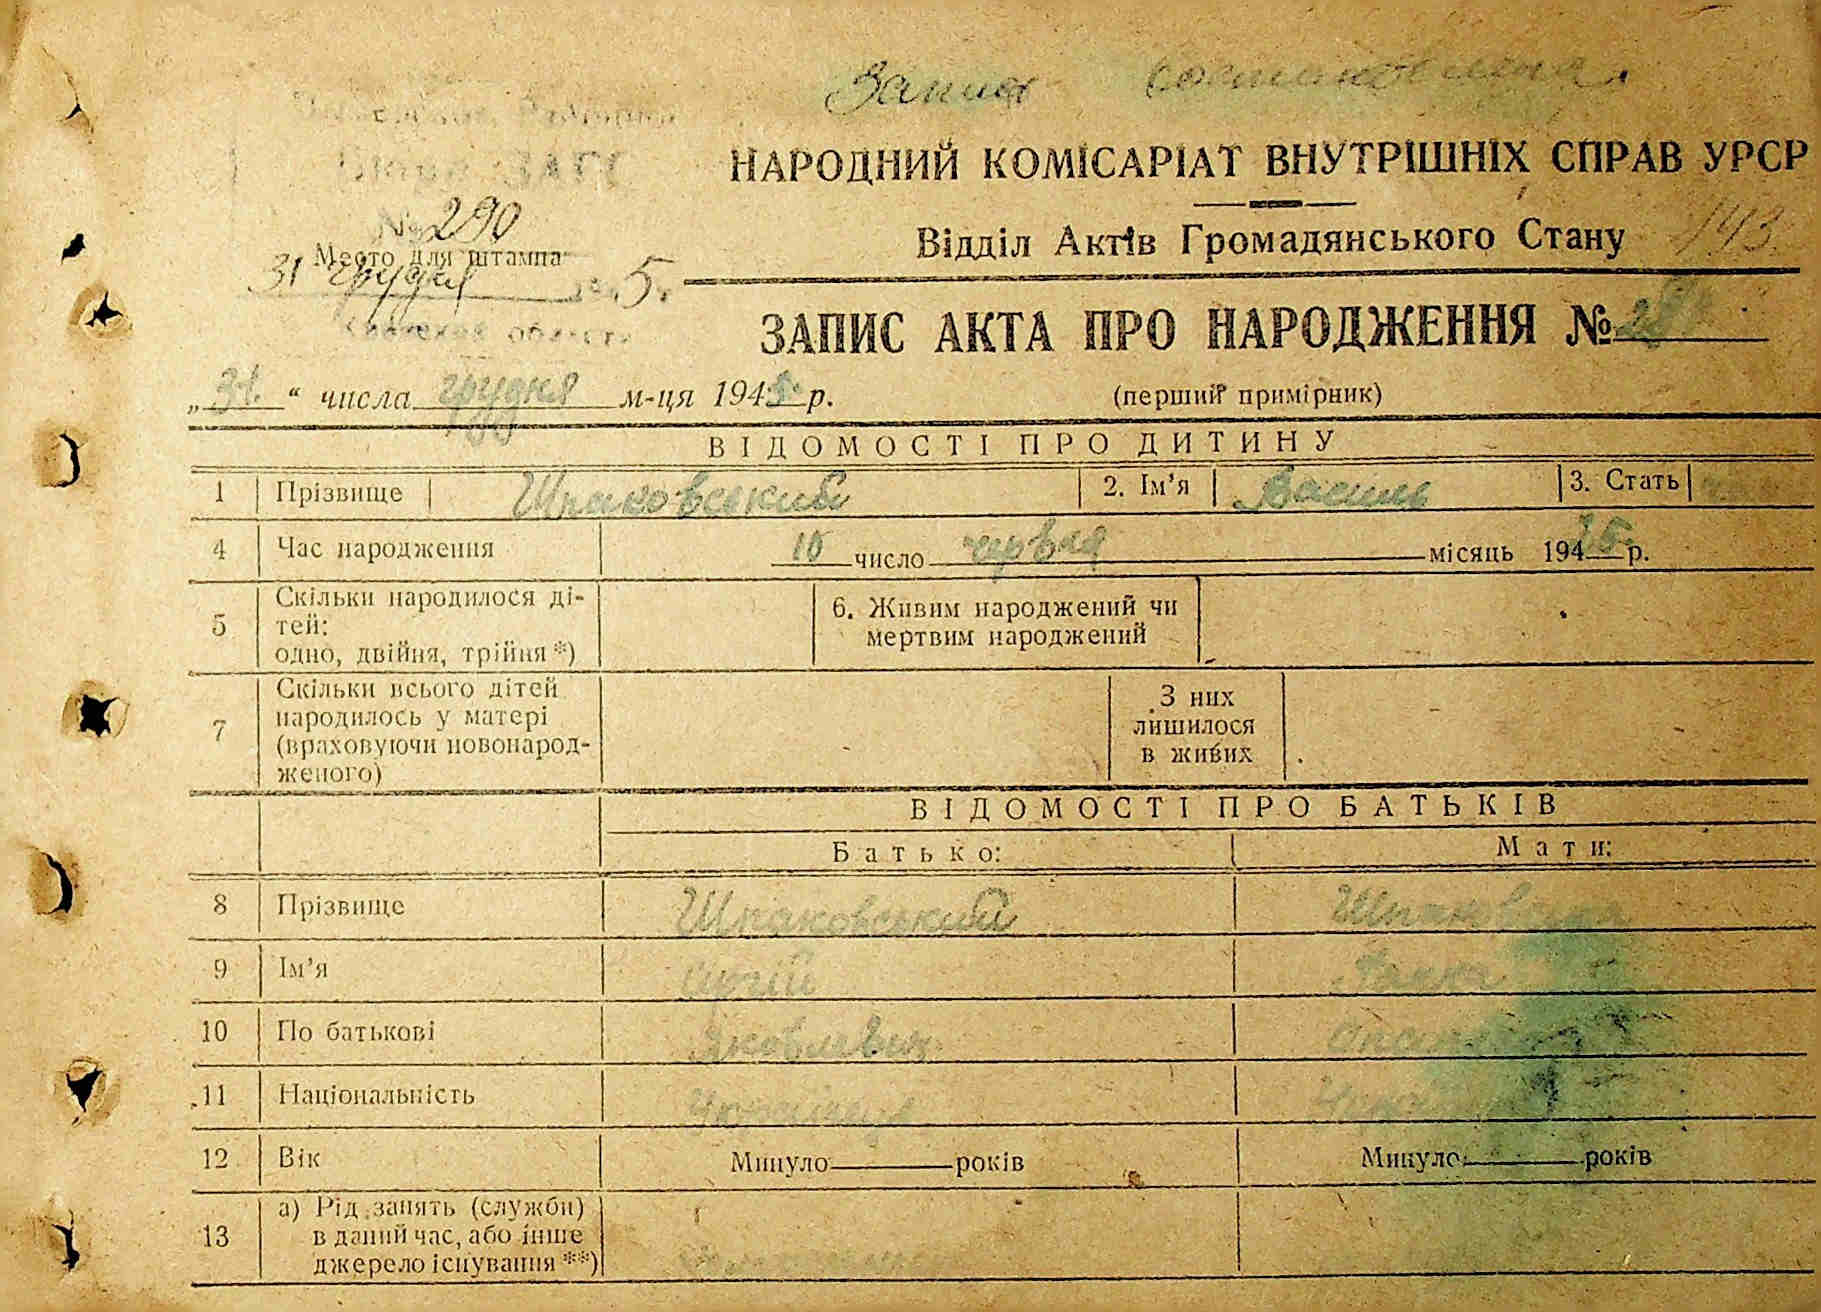 Запись
НАРОДНИЙ КОМІСАРІАТ ВНУТРІШНІХ СПРАВ УРСР
№ 290
Место для штампа
31 грудня 5
Відділ Актів Громадянського Стану
143.
ЗАПИС АКТА ПРО НАРОДЖЕННЯ №
„31." числа грудня м-ця 1945 р.
(перший примірник)
ВІДОМОСТІ ПРО ДИТИНУ
1 Прізвище Шпаковський 2. Ім'я Василь 3. Стать
4 Час народження 10 число червня місяць 194 25 р.
5 Скільки народилося ді-
тей:
одно, двійня, трійня *)
6. Живим народжений чи
мертвим народжений
7 Скільки всього дітей
народилось у матері
(враховуючи новонарод-
женого)
З них
лишилося
в живих
ВІДОМОСТІ ПРО БАТЬКІВ
Батько: Мати:
8 Прізвище Шпаковський Шпаковська
9 Ім'я Сергій Ганна
10 По батькові Яковлевич
11 Національність Українець
12 Вік Минуло років Минуло років
13 а) Рід занять (служби)
в даний час, або інше
джерело існування **)